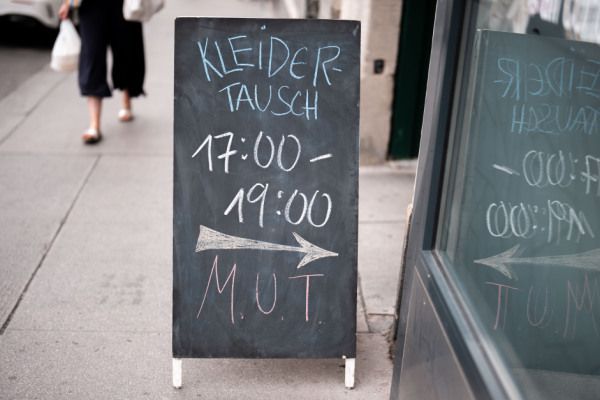 KLEIDER-
TAUSCH
17:00 –
19:00
M.U.T.